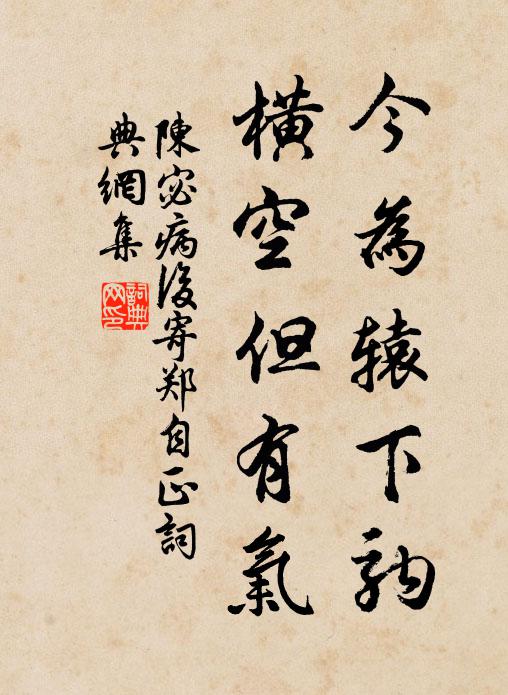 今為辕下駒
横空但有氣
陳宓病後寄郑自正詞
典網集
詞典
网印